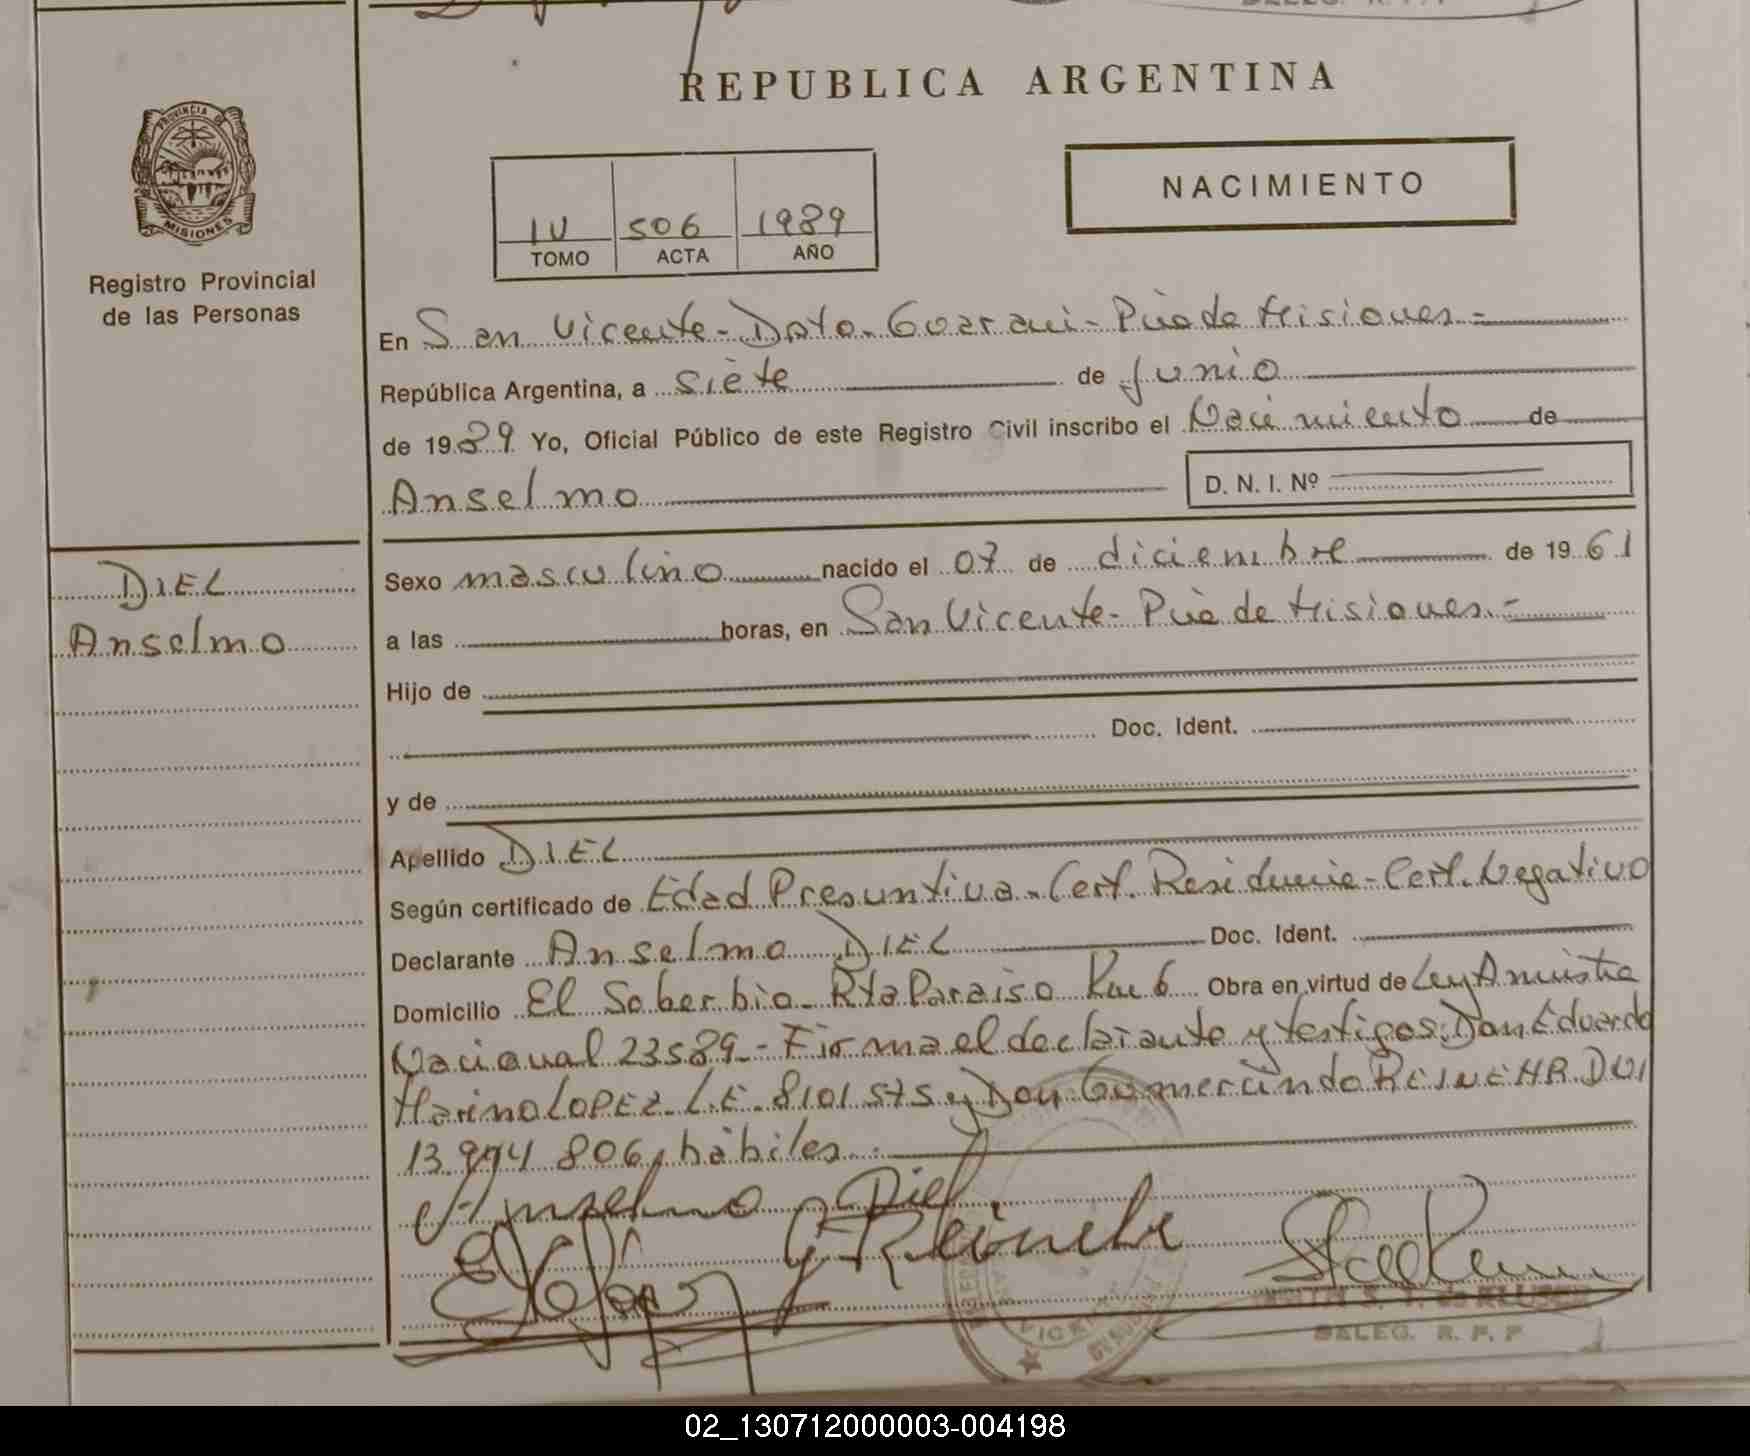 REPUBLICA ARGENTINA
PROVINCIA DE
MISIONES
Registro Provincial
de las Personas
IV 506 1989
TOMO ACTA AÑO
NACIMIENTO
En San Vicente - Dpto. Guarani - Pcia de Misiones. -
República Argentina, a siete de junio
de 1989 Yo, Oficial Público de este Registro Civil inscribo el Nacimiento de
Anselmo D. N. I. Nº
DIEL
Anselmo
Sexo masculino nacido el 07 de diciembre de 1961
a las horas, en San Vicente - Pcia de Misiones. -
Hijo de
Doc. Ident.
y de
Apellido DIEL
Según certificado de Edad Presuntiva - Cert. Residencia - Cert. Negativo
Declarante Anselmo DIEL Doc. Ident.
Domicilio El Soberbio - Rta Paraiso Km 6 Obra en virtud de Ley Amnistia
Nacional 23589. - Firma el declarante y testigos: Don Eduardo
Marino LOPEZ. L.E. 8101575 y Don Gumercindo REINEHR. DNI
13.994 806, hàbiles. -
Anselmo Diel
G Reinehr
DELEG. R. P. P
02_130712000003-004198